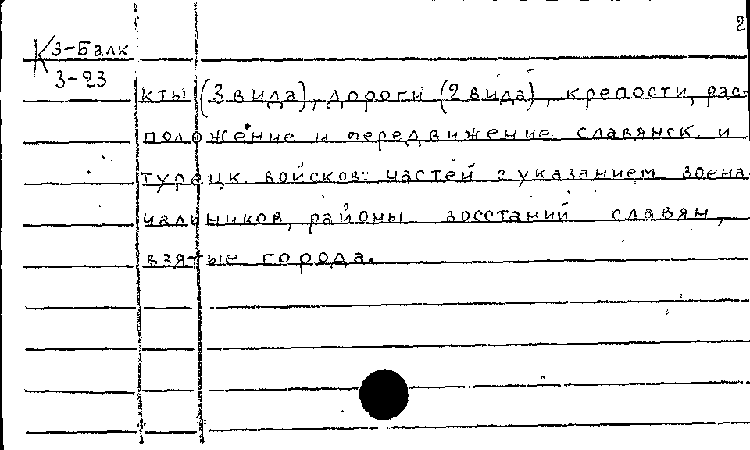 2
К 3-Балк
3-23
кты (3 вида), дороги (2 вида), крепости, рас-
положение и передвижение славянск. и
турецк. войсков. частей с указанием военна-
чальников, районы восстаний славян,
взятые города.